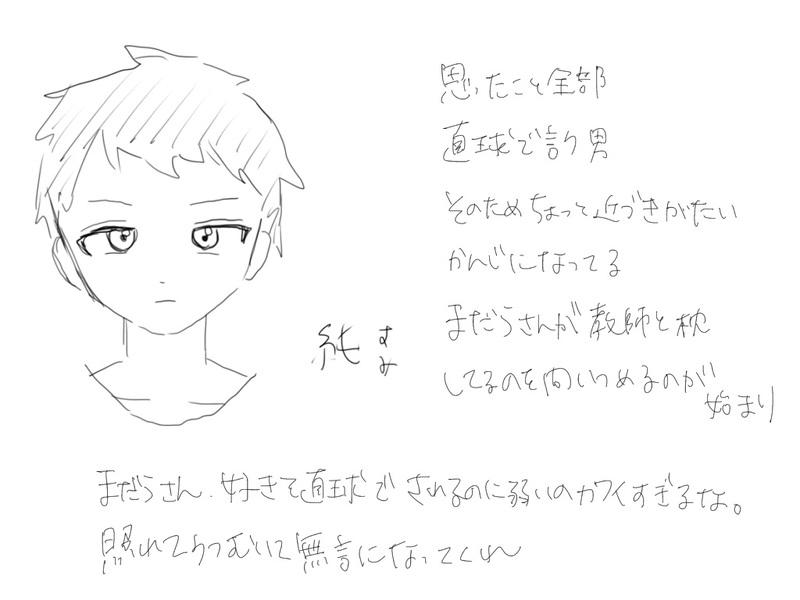 思ったこと全部
直球で言う男
そのためちょっと近づきがたい
かんじになってる
まだらさんが教師と枕
してるのを問いつめるのが
始まり
純 すみ
まだらさん、好きを直球でされるのに弱いのカワイすぎるな。
照れてうつむいて無言になってくれ